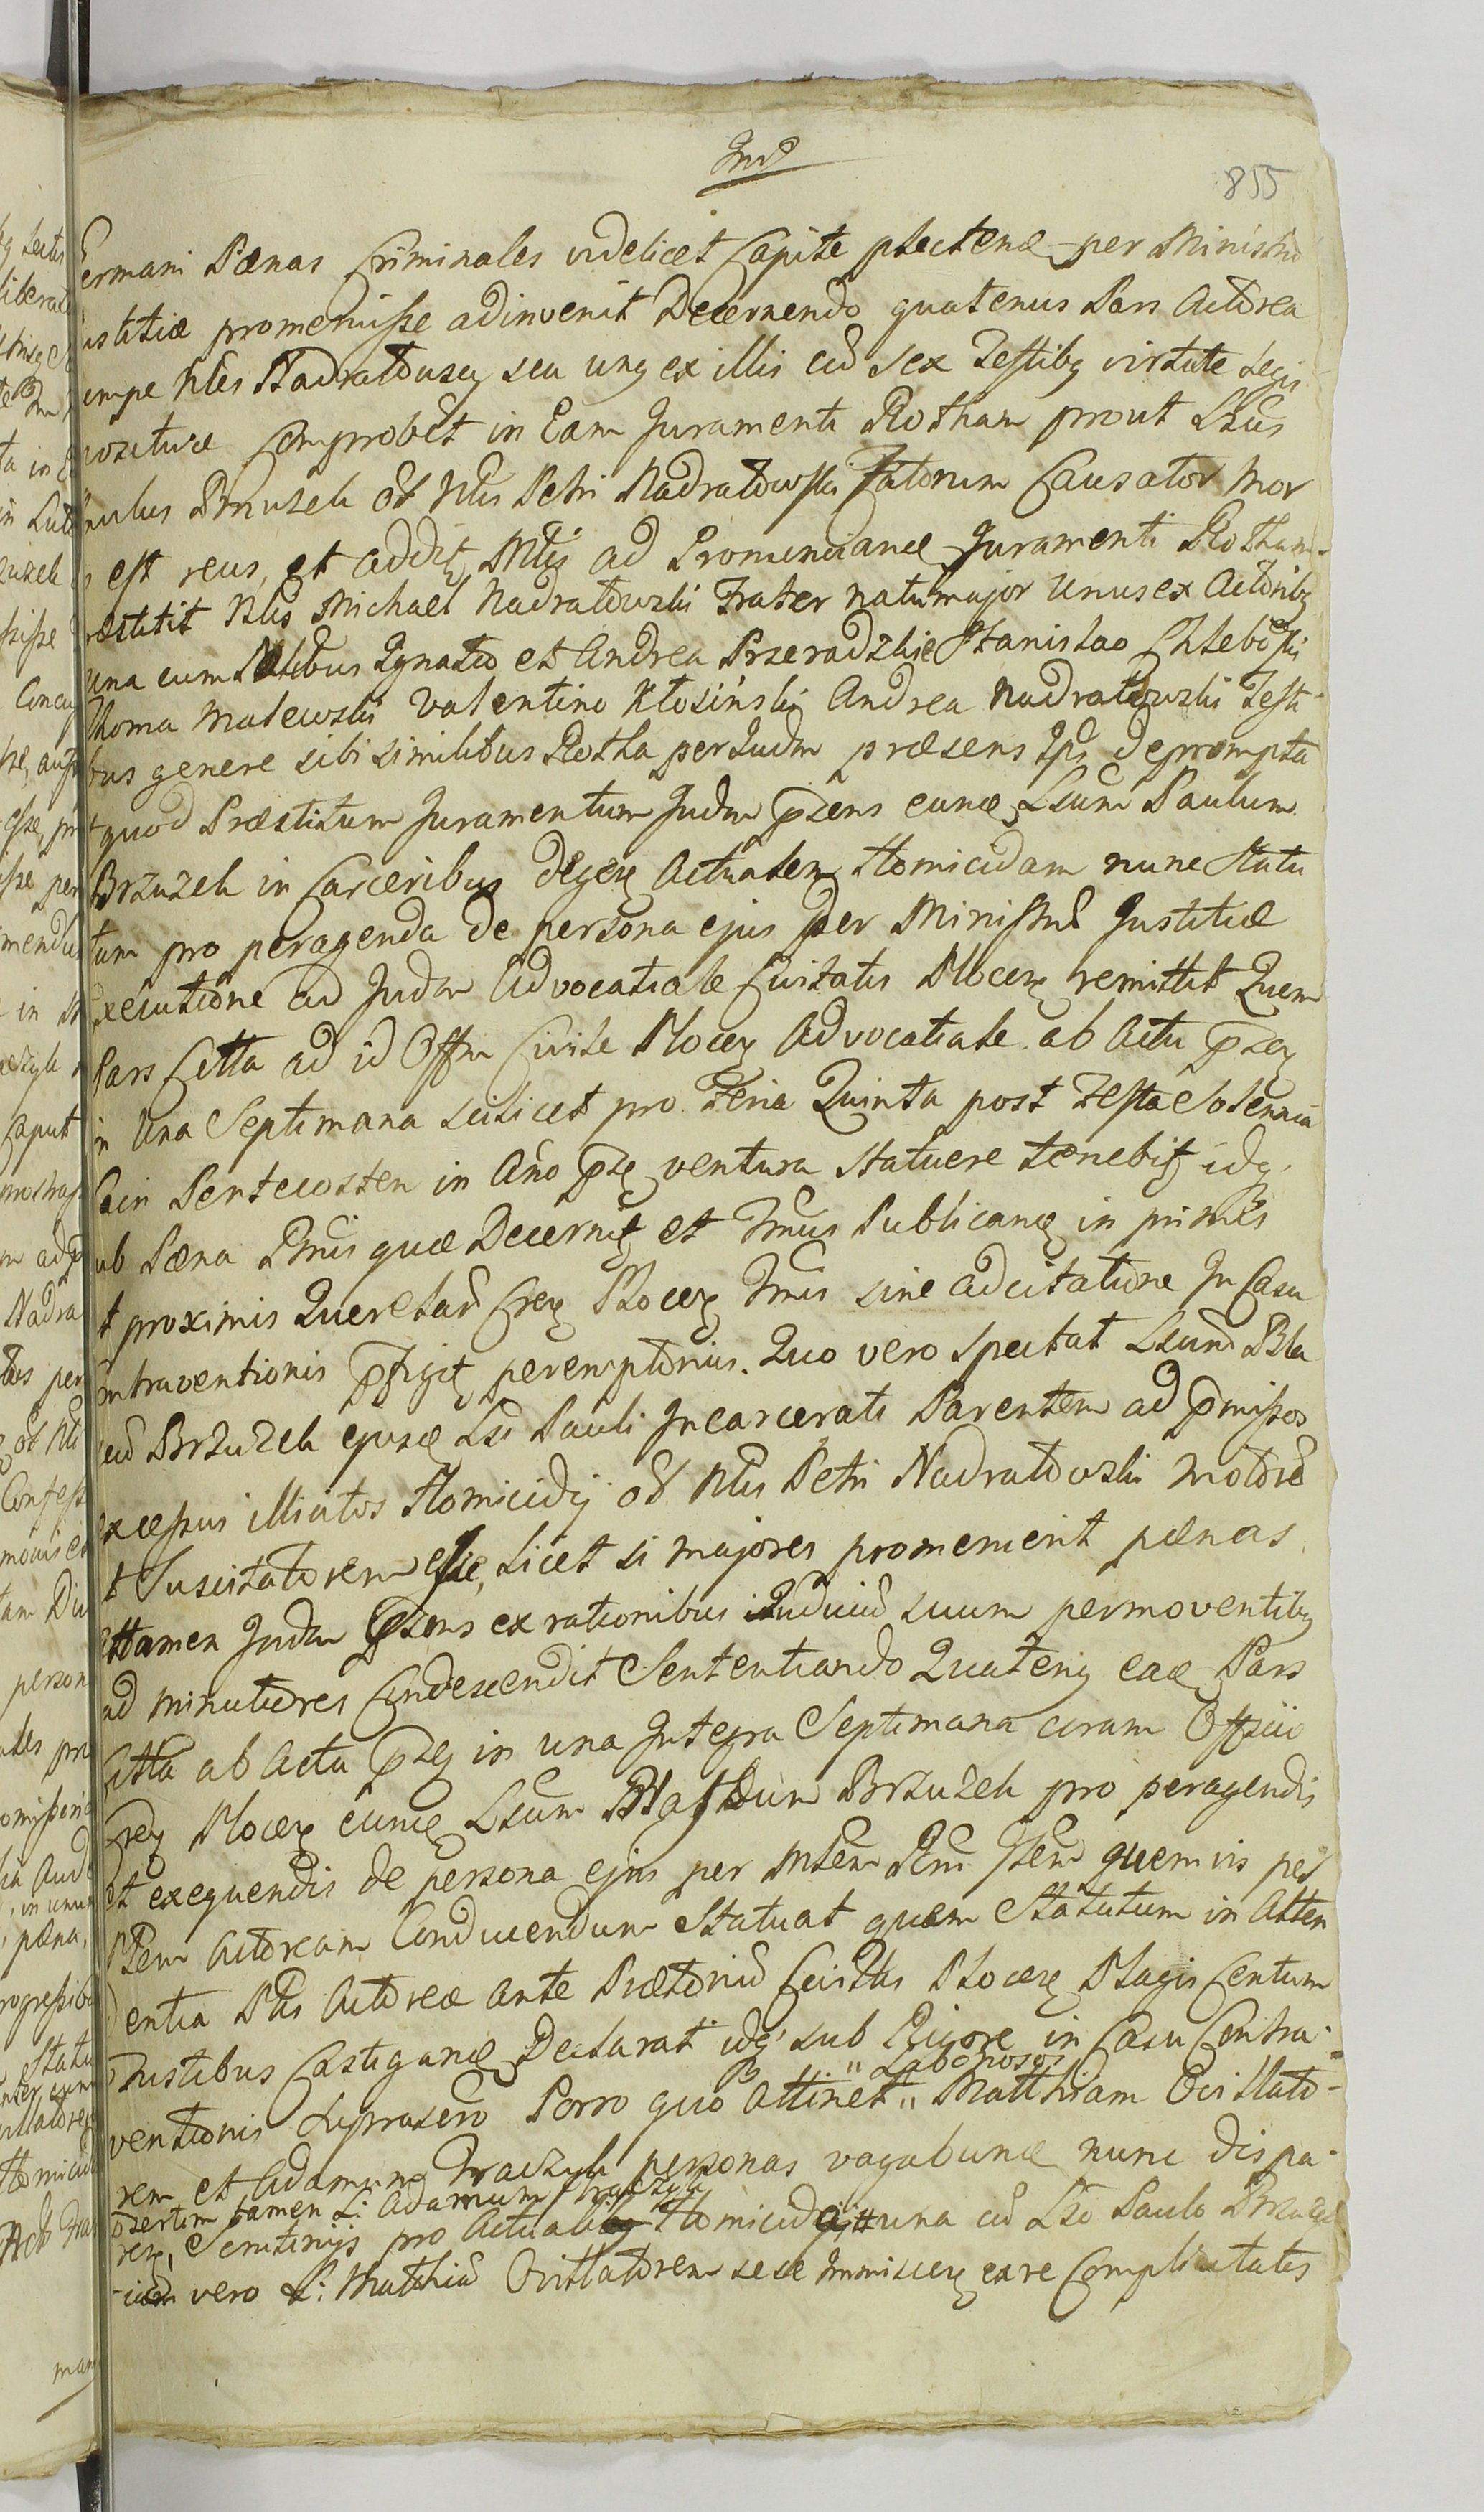 Jnd
855
ermani Pænas Criminales videlicet Capite plectenæ per Ministrũ
ustitiæ promeruisse adinvenit Decernendo quatenus Pars Actorea
empe Nles Nadratouscy seu unq ex illis cũ sex Testibq virtute Legis
positivæ Comprobet in Eam Juramenti Rotham prout Lbus
Paulus Brzuzek ol Nlis Petri Nadratowski Fatorum Causator mor
s est reus, et addit Mtis ad Pronunciane Juramenti Rotham
ræstitit Nlis Michael Nadratowski Frater natu major unus ex Actoribq
una cum Nlibus Ignatio et Andrea Przeradzkie Stanislao Chlebowski
Thoma Malewski Valentino Kłosiński Andrea Nadratowski Testi-
bus genere sibi similibus Rotha per Judm præsens Ips deprompta
quod Præstitum Juramentum Judm pzens eunæ Lbum Paulum
Brzuzek in Carceribus degen Actualem Homicidam nunc Statu
tum pro peragenda de persona ejus per Ministrũ Justitiæ
Executione ad Judm Advocatiale Civitatis Plocen remittit Quem
Pars Citta ad id Offm Civile Plocen Advocatiale ab Actu pzen
in Una Septimana scilicet pro Feria Quinta post Festa Solennia
Sacri Pentecosten in Año pze ventura Statuere tenebit idq
sub Pæna Pnis quæ Decernit et Tmus Publicanæ in primis
et proximis Querelarũ Cren Plocen Tmis sine adcitatione In Casu
ontraventionis pfigit peremptorius. Quo vero spectat Lbum Bla
seũ Brzuzek ejusæ Lbi Pauli Incarcerati Parentem ad pmissos
excessus illicitos Homicidij ol Nlis Petri Nadratowski motorẽ
et Suscitatorem esse, licet si majores promeruerit pænas
attamen Judm pzens ex rationibus Judiciũ suum permoventibq
ad minutiores Condescendit Sententiando Quatenq eaæ Pars
Citta ab Actu pzen in una Integra Septimana coram Officio
Cren Plocen eunæ Lbum Blasium Brzuzek pro peragendis
et exequendis de persona ejus per Mtem Pnis Item quemvis per
Ptem Actoream Conducendum Statuat quem Statutum in Atten
dentia Ptis Actoreæ ante Prætoriũ Civittis Plocen Plagis Centum
Fustibus Castiganæ Declarat idq sub Rigore in Casu Contra-
ventionis suprascro Porro quo Attinet " Laboriosos " Matthiam Ovillato-
rem et Adamum Traczyk personas vagabunæ nunc dispa-
ren, Scrutinijs præsertim tamen L: Adamum Traczyk pro Actuali Homicida una cũ Lbo Paulo Brzuzek
vero L: Matthiã Ovillatorem sese immiscen eare Complicitatis